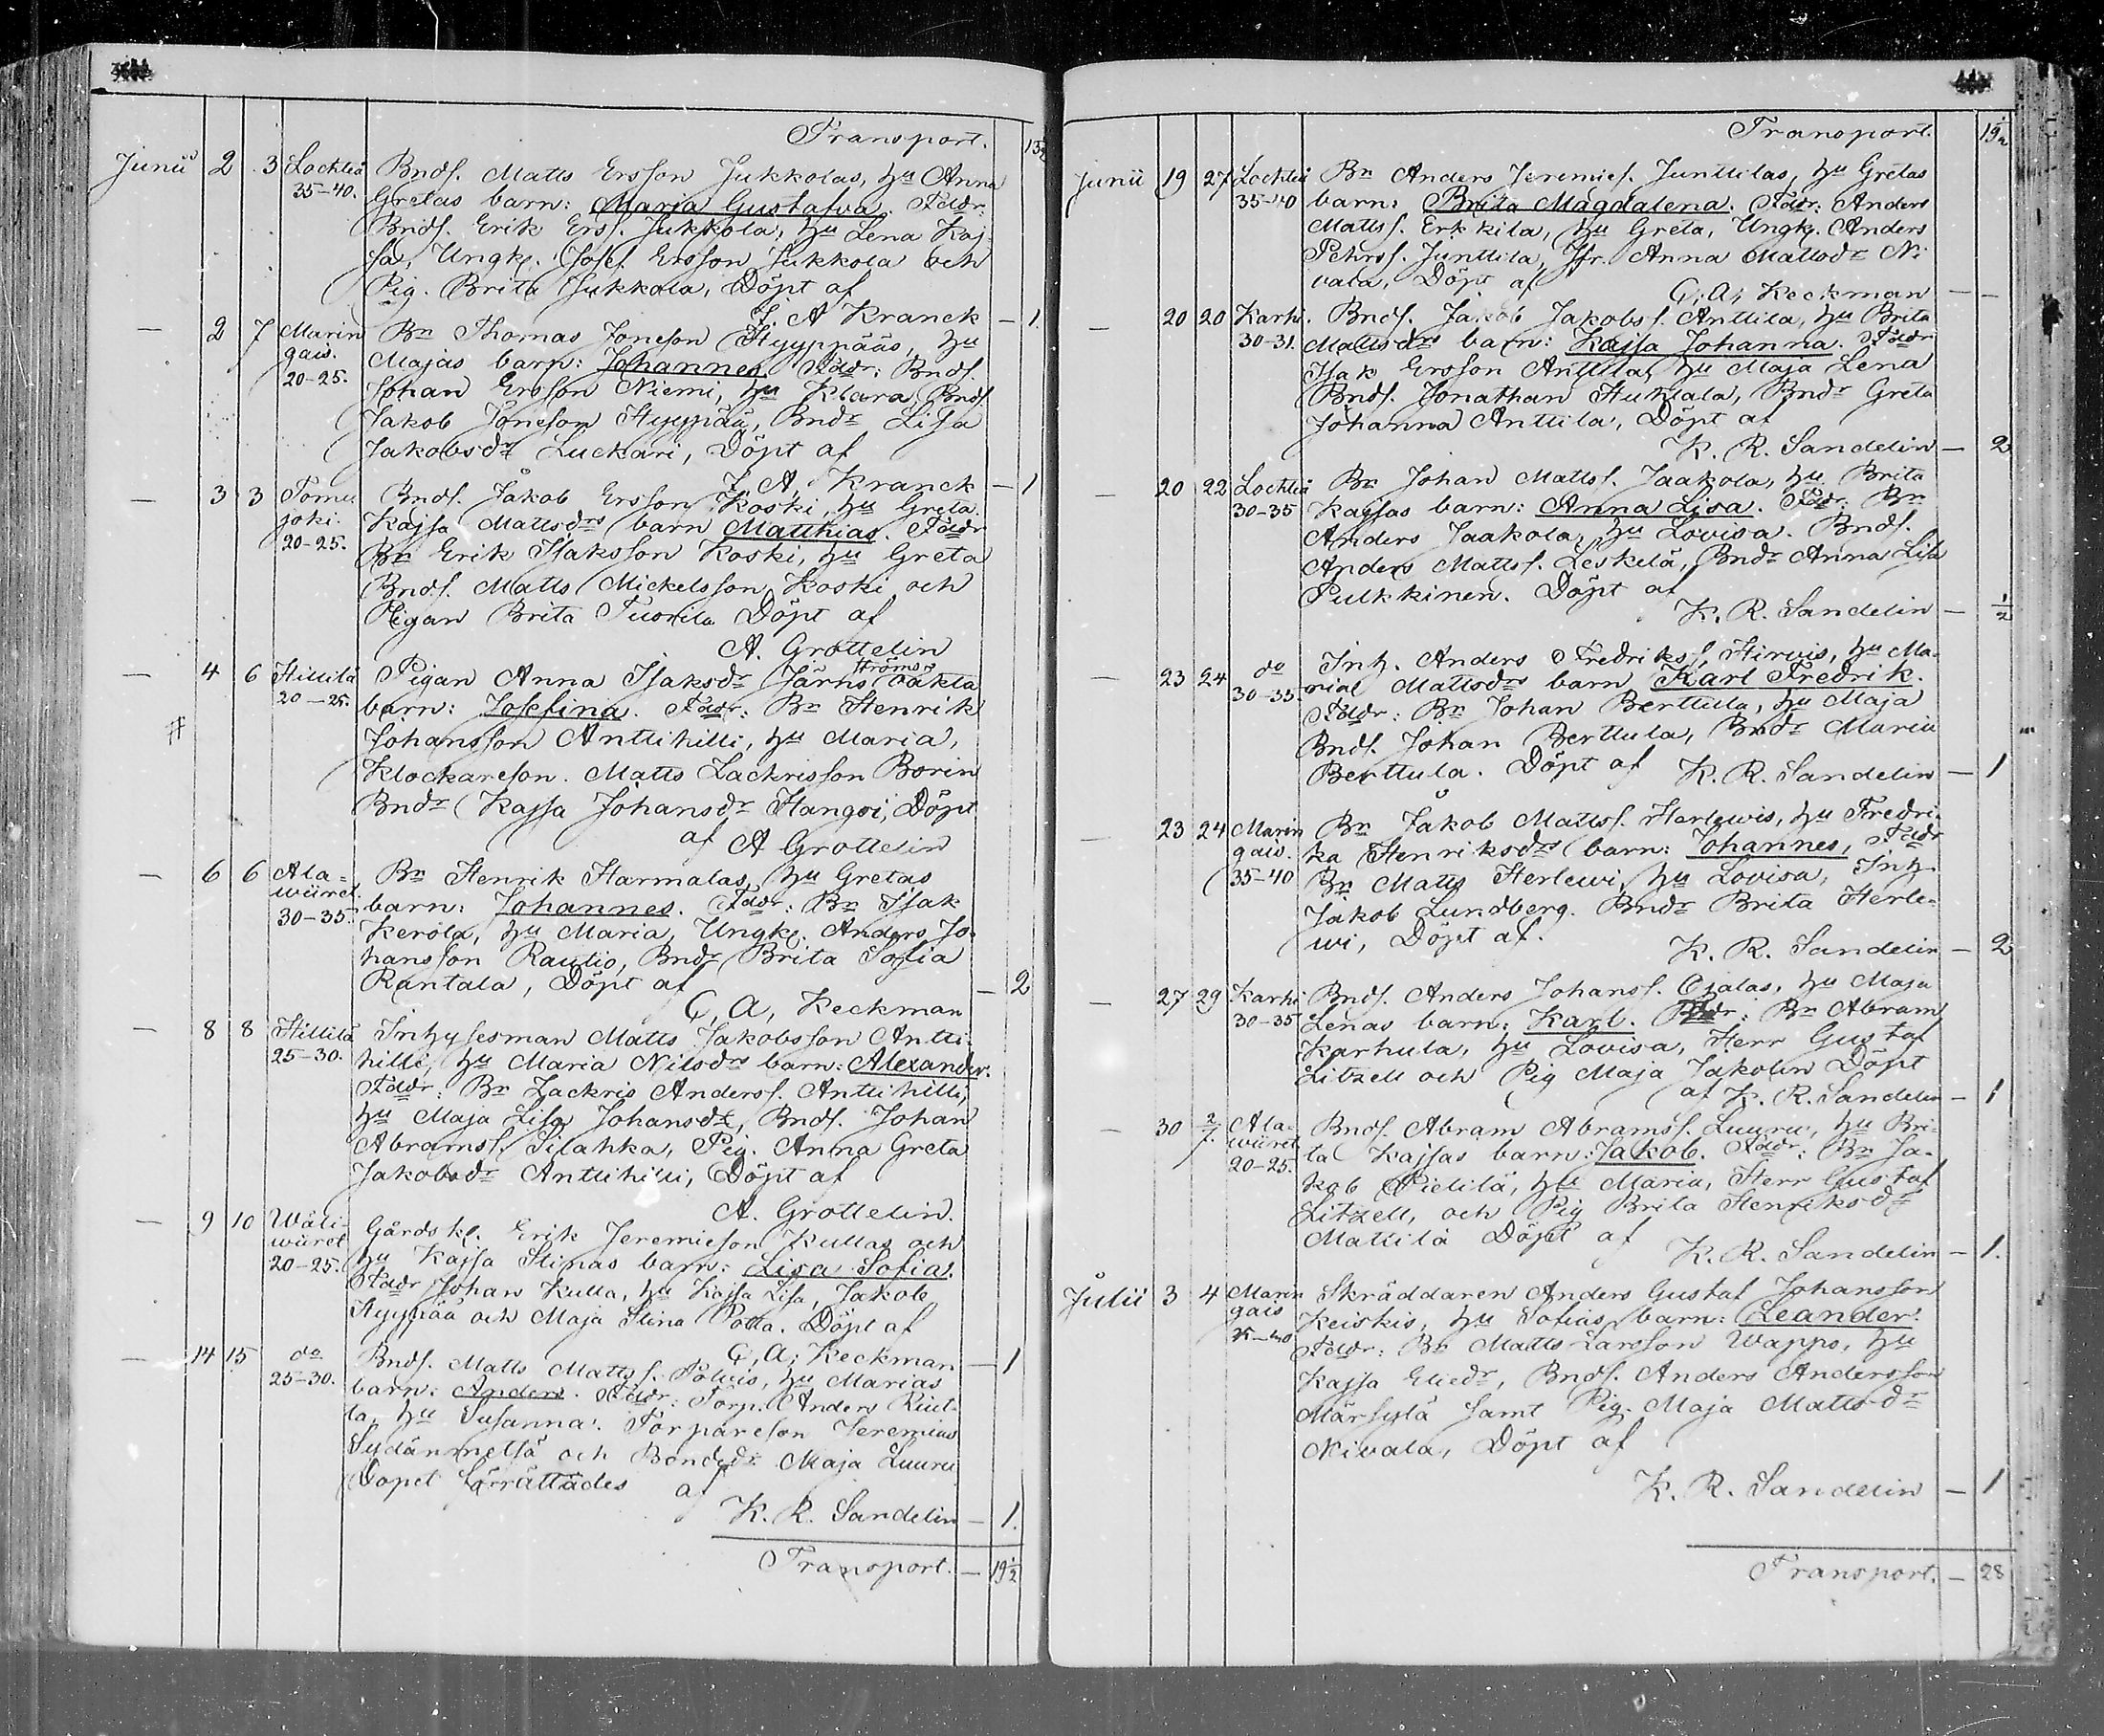 Transport. 13½
Junii 2 3 Lochteå Bnds. Matts Ersson Jukkolas, hu Anna
35-40. Gretas barn: Maria Gustafva. Faddr:
Bnds. Erik Erss. Jukkola, hu Lena Kaj-
sa, Ungk. Josef Ersson Jukkola och
Pig. Brita Jukkola, Döpt af
J. A Kranck — 1.
— 2 7 Marin Bn Thomas Jonsson Hyyppääs, hu
gais. Majas barn: Johannes. Faddr: Bnds.
20-25. Johan Ersson Niemi, hu Klara, Bnds
Jakob Jonsson Hyypää, Bndr Lisa
Jakobsdr Luckari, Döpt af
J. A. Kranck — 1
— 3 3 Tomu Bnds. Jakob Ersson Koski, hu Greta
joki. Kajsa Mattsdrs barn Matthias. Faddr
20-25. Bn Erik Isaksson Koski, hu Greta
Bnds. Matts Mickelsson Koski och
Pigan Brita Tuorila Döpt af
A. Grottelin
— 4 6 Hillilä Pigan Anna Isaksdr Järns Ströms Takla
20-25. barn: Josefina. Faddr: Bn Henrik
# Johansson Anttihilli, hu Maria,
Klockareson. Matts Zackrisson Borin
Bndr Kajsa Johansdr Hangoi, Döpt
af A Grottelin
— 6 6 Ala= Bn Henrik Harmalas, hu Gretas
wiiret. barn: Johannes. Faddr: Bn Isak
30-35. Kerola, hu Maria, Ungk. Anders Jo-
hansson Rautio, Bndr Brita Sofia
Rantala, Döpt af — 2
C, A, Keckman
— 8 8 Hillilä Inhysesman Matts Jakobsson Antti-
25-30. hilli, hu Maria Nilsdrs barn: Alexander.
Faddr: Bn Zackris Anderss. Anttihilli,
hu Maja Lisa Johansdr, Bnds. Johan
Abramss. Silahka, Pig. Anna Greta
Jakobsdr Anttihilli, Döpt af
A. Grottelin.
— 9 10 Wäli- Gårdsk. Erik Jeremieson Kullas och
wiiret hu Kajsa Stinas barn: Lisa Sofia.
20-25. Faddr Johan Kulla, hu Kajsa Lisa, Jakob
Hyypää och Maja Stina Potta. Döpt af
C, A, Keckman — 1
— 14 15 do Bnds. Matts Mattss. Polvis, hu Marias
25-30. barn: Anders. Faddr: Torp. Anders Riut-
ta, hu Susanna. Torpareson Jeremias
Sydänmetsä och Bondedr Maja Luuru
Dopet förrättades af
K. R. Sandelin — 1.
Transport. — 19½
Transport. 19½
Junii 19 27 Lochteå Bn Anders Jeremies. Junttilas, hu Gretas
35-40 barn: Brita Magdalena. Faddr: Anders
Mattss. Erkkila, hu Greta, Ungk. Anders
Pehrss. Junttila, Jfr. Anna Mattsdr Ni
vala, Döpt af C, A, Keckman — —
— 20 20 Karhi. Bnds. Jakob Jakobss. Anttila, hu Brita
30-31. Mattsdrs barn: Kajsa Johanna. Faddr
Isak Ersson Anttila, hu Maja Lena
Bnds. Jonathan Huhtala, Bndr Greta
Johanna Anttila, Döpt af
K. R. Sandelin — 2
— 20 22 Lochteå Bn Johan Mattss. Jaakola, hu Brita
30-35 Kajsas barn: Anna Lisa. Faddr: Bn
Anders Jaakola, hu Lovisa. Bnds.
Anders Mattss. Leskelä, Bndr Anna Lisa
Pulkkinen. Döpt af
K. R. Sandelin — ½
— 23 24 do Inh. Anders Fredrikss. Hirvis, hu Ma-
30-35. rial Mattsdrs barn Karl Fredrik.
Faddr: Bn Johan Berttula, hu Maja
Bnds. Johan Berttula, Bndr Maria
Berttula. Döpt af K. R. Sandelin — 1
— 23 24 Marin Bn Jakob Mattss. Herlewis, hu Fredri-
gais. ka Henriksdrs barn: Johannes, Faddr
35-40 Bn Matts Herlewi, hu Lovisa, Inh
Jakob Lundberg. Bndr Brita Herle-
wi, Döpt af.
K. R. Sandelin — 2
— 27 29 Karhi Bnds. Anders Johanss. Ojalas, hu Maja
30-35 Lenas barn: Karl. Faddr: Bn Abram
Karhula, hu Lovisa, Herr Gustaf
Litzell och Pig Maja Jakolin Döpt
af K. R. Sandelin — 1
— 30 2/7. Ala- Bnds. Abram Abramss. Luuru, hu Bri-
wiiret ta Kajsas barn: Jakob. Faddr: Bn Ja-
20-25. kob Pietilä, hu Maria, Herr Gustaf
Litzell, och Pig Brita Henriksdr
Mattila Döpt af
K. R. Sandelin — 1.
Julii 3 4 Marin Skräddaren Anders Gustaf Johansson
gais Keiskis, hu Sofias barn: Leander.
Faddr: Bn Matts Larsson Wappo, hu
Kajsa Eliedr, Bnds. Anders Andersson
Märsylä samt Pig. Maja Mattsdr
Nivala, Döpt af
K. R. Sandelin — 1
Transport. — 28